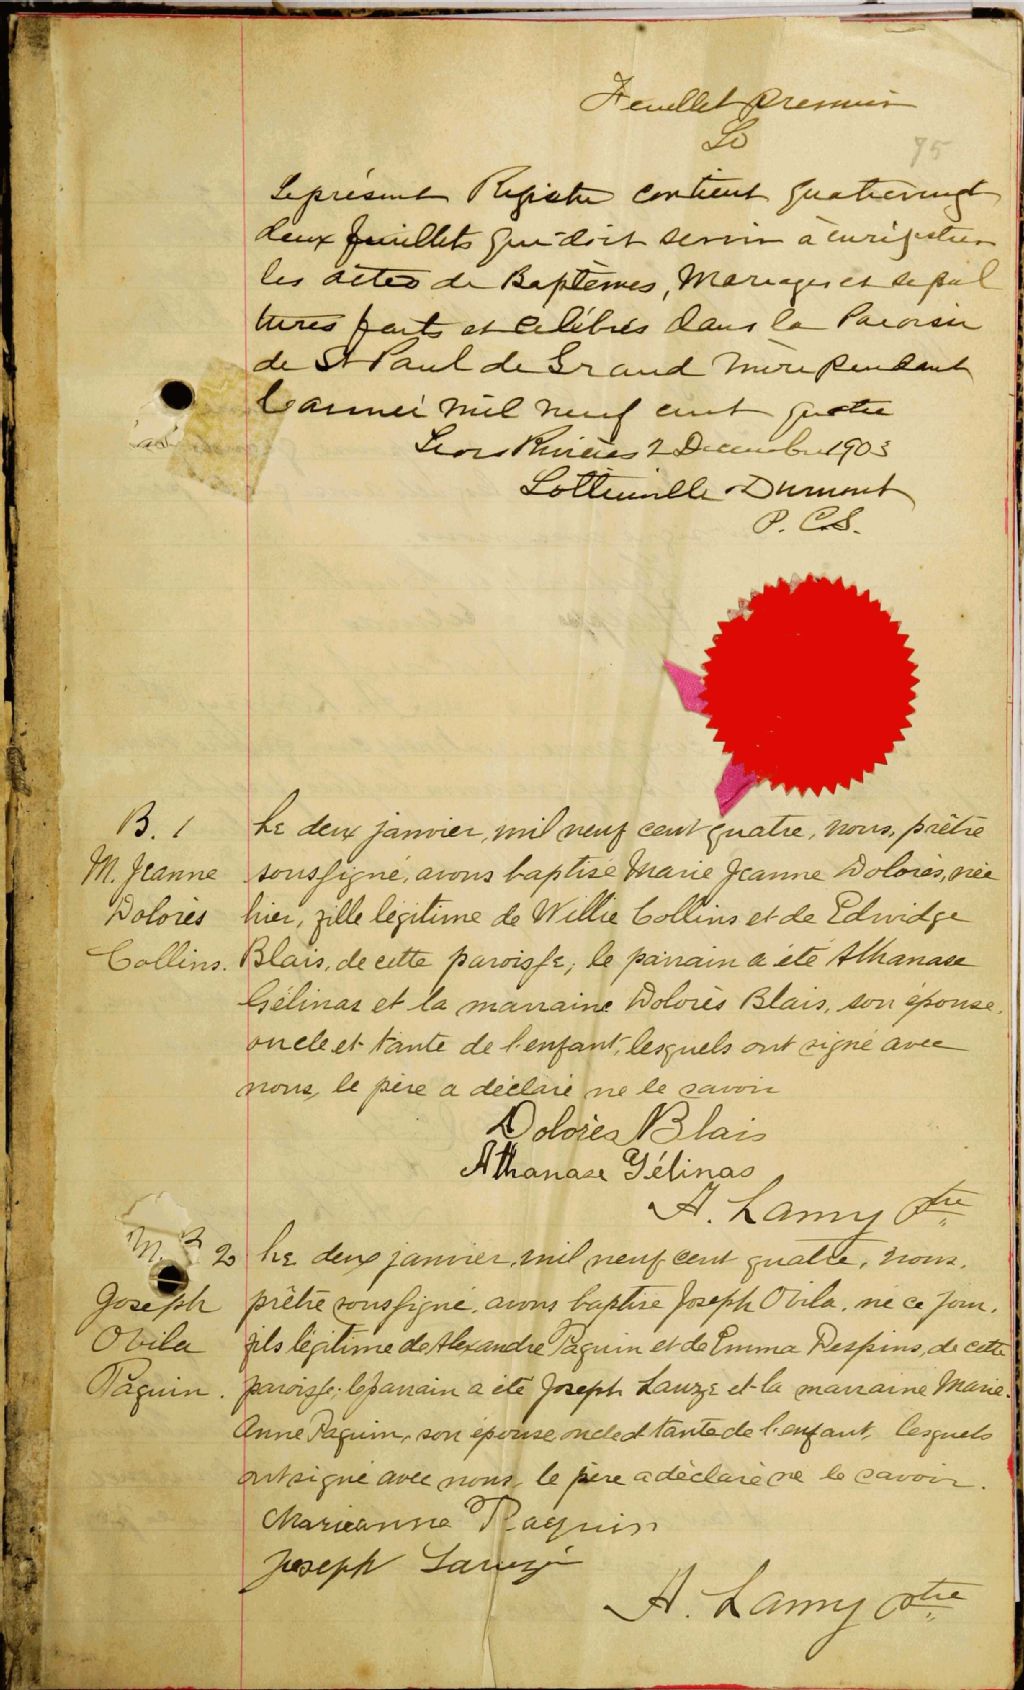 Feuillet Premier
LD
95
Le présent Registre contient quatrevingt
deux feuillets qui doit servir à enregistrer
les actes de Baptêmes, Mariages et sepul
tures faits et célébrés dans la Paroisse
de St Paul de Grand Mère pendant
l'année mil neuf cent quatre
Trois Rivières 2 Decembre 1903
Lottinville Dumont
P. C. S.
B. 1
M. Jeanne
Dolorès
Collins.
Le deux janvier, mil neuf cent quatre, nous, prêtre
soussigné, avons baptisé Marie Jeanne Dolorès, née
hier, fille légitime de Willie Collins et de Edwidge
Blais, de cette paroisse; le parrain a été Athanase
Gélinas et la marraine Dolorès Blais, son épouse,
oncle et tante de l'enfant, lesquels ont signé avec
nous, le père a déclaré ne le savoir
Dolorès Blais
Athanase Gélinas
A. Lamy ptre
2
Joseph
Obila
Paquin.
Le deux janvier, mil neuf cent quatre, nous,
prêtre soussigné, avons baptisé Joseph Obila, né ce jour,
fils légitime de Alexandre Paquin et de Emma Despins, de cette
paroisse; le parrain a été Joseph Lauzé et la marraine Marie-
Anne Paquin, son épouse oncle et tante de l'enfant, lesquels
ont signé avec nous, le père a déclaré ne le savoir.
Marieanne Paquin
Joseph Lauzé
A. Lamy ptre